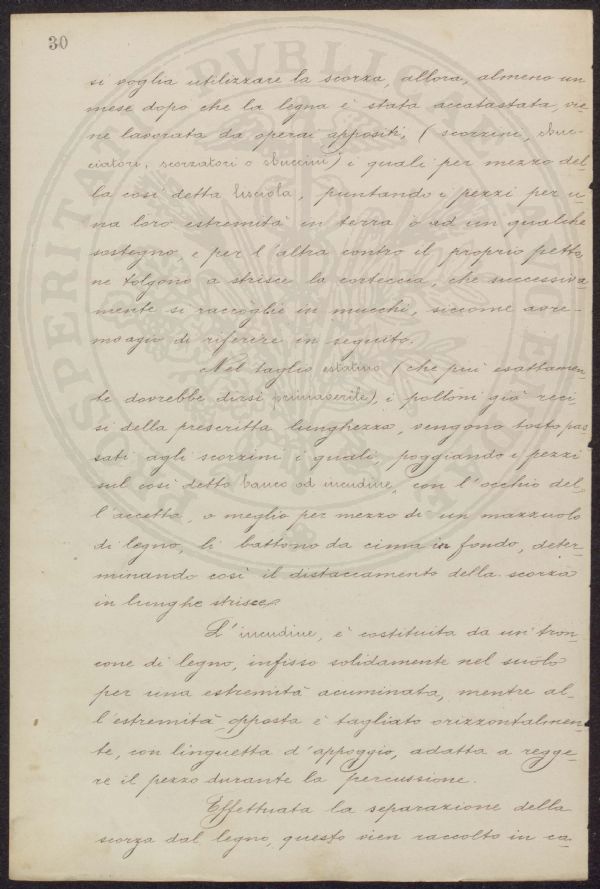 30
si voglia utilizzare la scorza, allora, almeno un
mese dopo che la legna è stata accatastata, vie-
ne lavorata da operai appositi, (scorzini, sbuc-
ciatori, scorzatori o sbuccini) i quali per mezzo del-
la così detta lisciola, puntando i pezzi per u-
na loro estremità in terra o ad un qualche
sostegno, e per l'altra contro il proprio petto,
ne tolgono a strisce la corteccia, che successiva-
mente si raccoglie in mucchi, siccome avre-
mo agio di riferire in seguito.
Nel taglio estativo (che più esattamen-
te dovrebbe dirsi primaverile), i polloni già reci-
si della prescritta lunghezza, vengono tosto pas-
sati agli scorzini i quali, poggiando i pezzi
sul così detto banco od incudine, con l'occhio del-
l'accetta, o meglio per mezzo di un mazzuolo
di legno, li battono da cima in fondo, deter-
minando così il distaccamento della scorza
in lunghe strisce.
L'incudine, è costituita da un tron-
cone di legno, infisso solidamente nel suolo
per una estremità acuminata, mentre al-
l'estremità opposta è tagliato orizzontalmen-
te, con linguetta d'appoggio, adatta a regge-
re il pezzo durante la percussione.
Effettuata la separazione della
scorza dal legno, questo vien raccolto in ca-